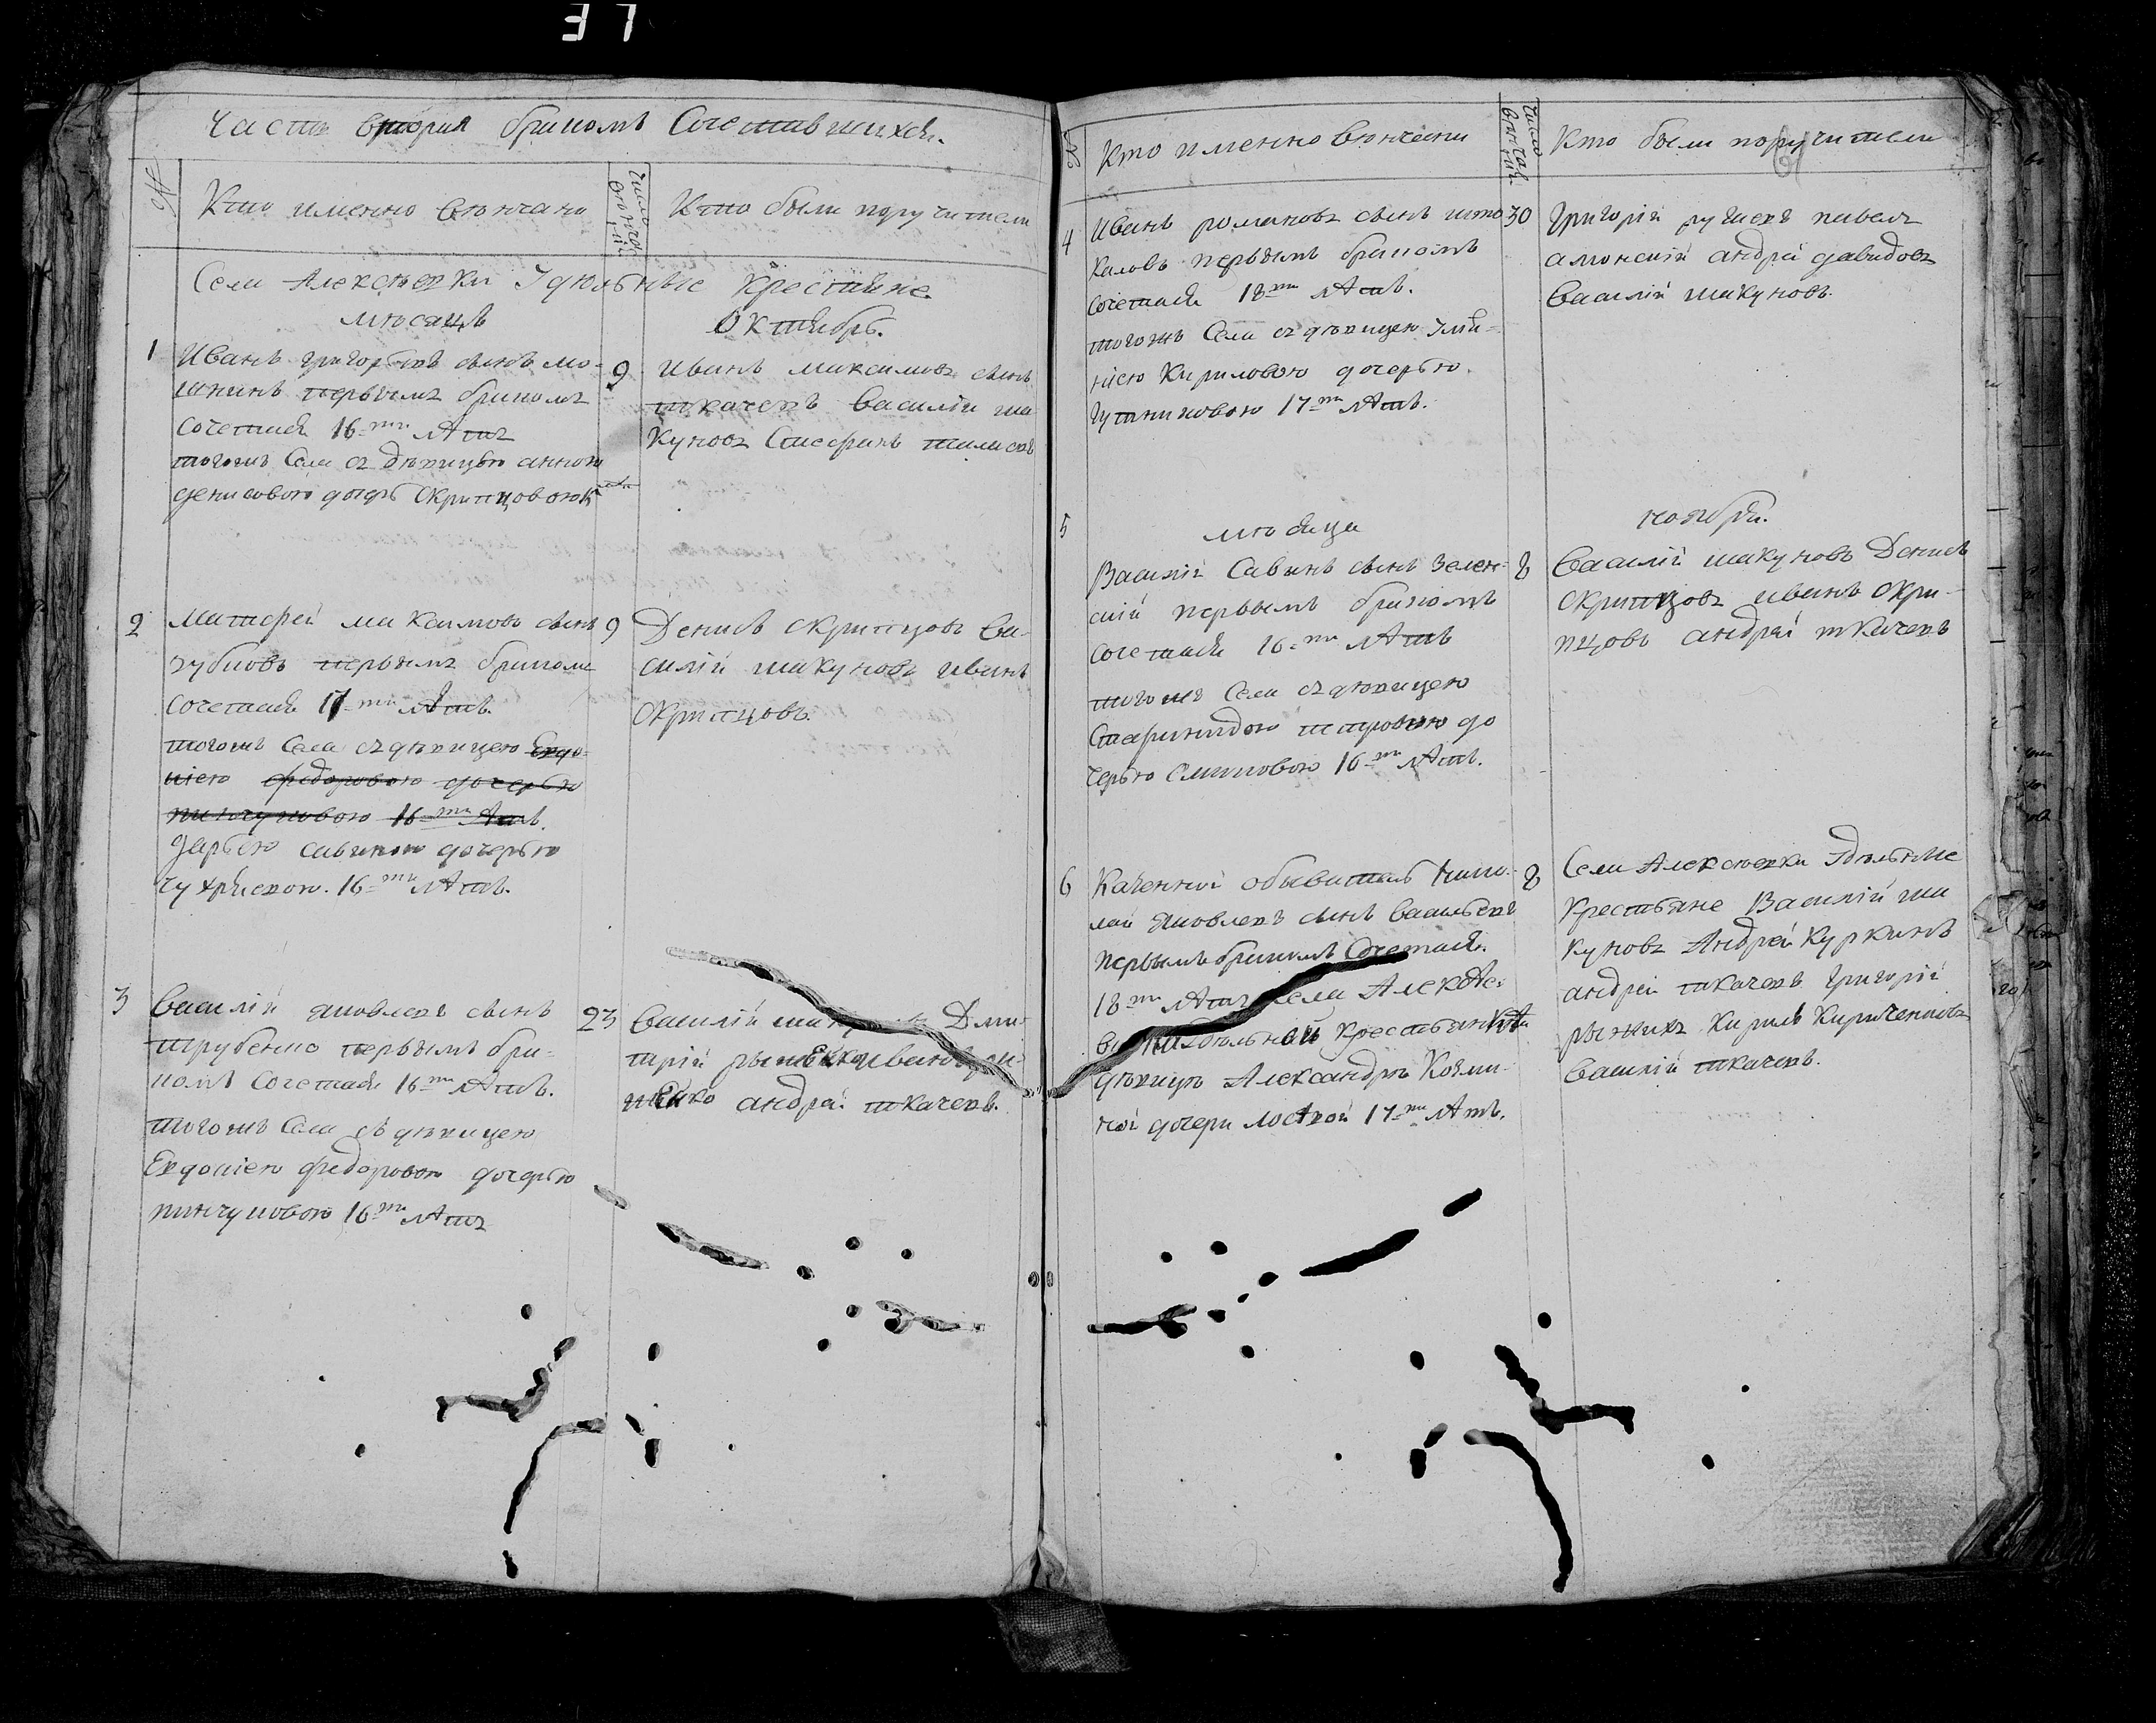 Часть вторая бракомъ Сочетавшихся.
№
Кто именно венчаны
Кто были поручители
Села Алексѣевки Удѣльные Крестьяне
мѣсяцъ
Октябрь.
1
Иванъ григорьевъ сынъ мо-
шнинъ первымъ бракомъ
Сочетался 16-ти лѣтъ
тогожъ Села съ дѣвицею анною
денисовою дочерью Скрипцовою
9
иванъ максимовъ сынъ
ткачевъ василій ша
куновъ
2
Матфей максимовъ сынъ
зубковъ первымъ бракомъ
сочетался 17-ти лѣтъ.
тогожъ Села съ дѣвицею Евдо-
кіею федоровою дочерью
пинчуковою 16-ти лѣтъ.
дарьею савиною дочерью
16-ти лѣтъ.
9
Денисъ скрипцовъ ва-
силій шакуновъ иванъ
скрипцовъ.
3
василій яковлевъ сынъ
трубенко первымъ бра-
комъ Сочетался 16-ти лѣтъ.
тогожъ Села съ дѣвицею
Евдокіею федоровою дочерью
пинчуковою 16-ти лѣтъ
23
василій Дми-
трій
андрей ткачевъ.
№
Кто именно венчаны
Кто были поручители
4
иванъ романовъ сынъ
первымъ бракомъ
сочетался 18-ти лѣтъ.
тогожъ Села съ дѣвицею
Кириловою дочерью
17-ти лѣтъ.
30
григорій павелъ
андрей давидовъ
василій шакуновъ.
мѣсяца
ноября.
5
Василій Савинъ сынъ Зелен-
скій первымъ бракомъ
сочетался 16-ти лѣтъ
тогожъ Села съ дѣвицею
петровою до
черью 16-ти лѣтъ.
8
василій шакуновъ Денисъ
скрипцовъ иванъ скри-
пцовъ андрей ткачевъ
6
Казенный обыватель Нико-
лай яковлевъ сынъ васильевъ
первымъ бракомъ Сочетался.
18-ти лѣтъ Села Алексѣе-
вки удѣльной крестьянки
дѣвицу Александру Козми-
ной дочери 17-ти лѣтъ.
8
Села Алексѣевки Удѣльные
крестьяне Василій ша
куновъ Андрей Куркинъ
андрей ткачевъ григорій
рыжихъ Кирилъ Кириченковъ
василій ткачевъ.